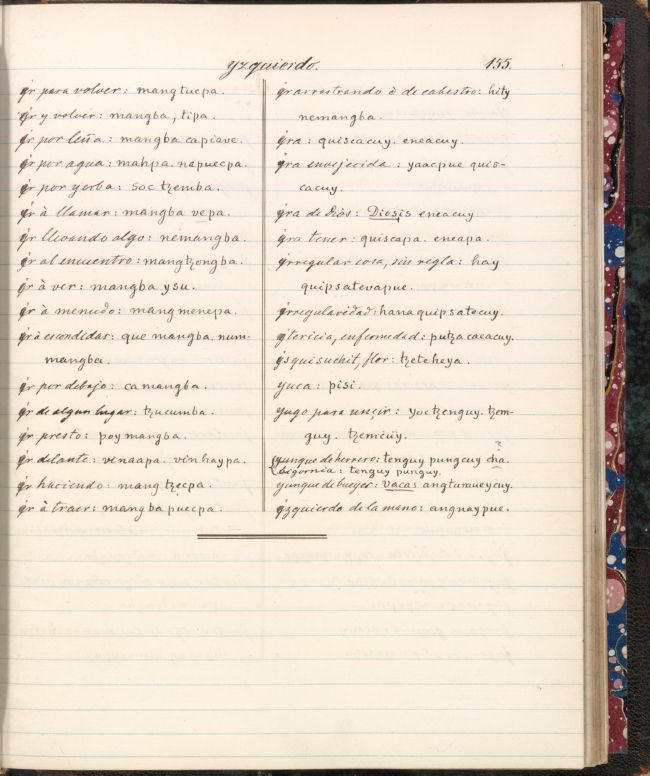 yzquierdo. 155.
yr para volver: mangtucpa.
yr y volver: mangba, tipa.
yr por leña: mangba capiave.
yr por agua: mahpa. napuecpa.
yr por yerba: soc tzemba.
yr à llamar: mangba vepa.
yr llevando algo: nemangba.
yr al encuentro: mangtzongba.
yr à ver: mangba ysu.
yr à menudo: mangmenepa.
yr à escondidas: que mangba, num-
mangba.
yr por debajo: camangba.
yr de algun lugar: tzucumba.
yr presto: poymangba.
yr delante: vinaapa. vinhaypa.
yr haciendo: mangtzecpa.
yr à traer: mangba puecpa.
yr arrastrando ò de cabestro: hity
nemangba.
yra: quiscacuy. eneacuy.
yra envejecida: yaacpue quis-
cacuy.
yra de Diòs: Diosis eneacuy
yra tener: quiscapa. eneapa.
yrregular cosa, sin regla: hay
quipsatevapue.
yrregularidad: hanaquipsatecuy.
ytericia, enfermedad: putzacaeacuy.
ysquisuchit, flor: tzetcheya.
yuca: pisi.
yugo para unçir: yoctzenguy. tzem-
guy. tzemcüy.
yunque de herrero: tenguy pungcuy cha.
?
bigornia: tenguy punguy.
yunque de bueyes: vaca: angtumueycuy.
yzquierdo de la mano: angnaypue.